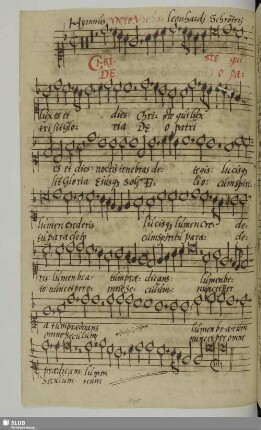 Hymnus Octo Vocum Leonhardi Schröteri
CHRI ste qui
DE o pa:
lux es et dies Chri: ste qui lux
tri sit glo: ria DE o patri
es et dies noctis tenebras de: tegis: lucisq;
sit gloria Eiusq; soli F lio: cum spiri
lumen crederis lucisq; lumen cre: de
tu paracleto cum spiritu para: cle
ris: lumen bea: tum prædi: cans: lumen be:
to nunc et per p: omne sæ: culum: nunc et per
atum prædicans lumen beatum
omne sæculum nunc et per omne
prædicans: lumen
sæculum nunc
SLUB